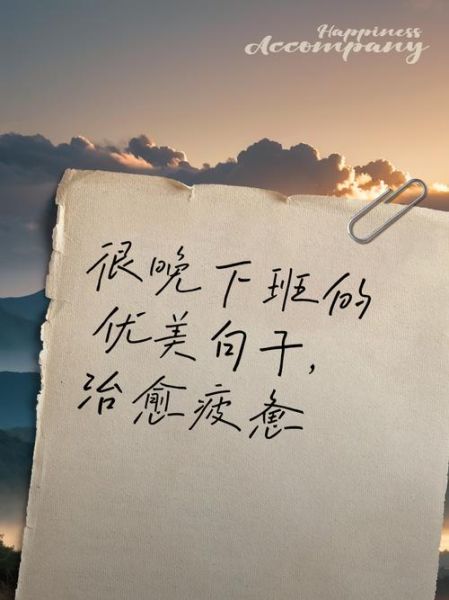 Happiness
Accompany
很晚下班的
优美句子,
治愈疲惫